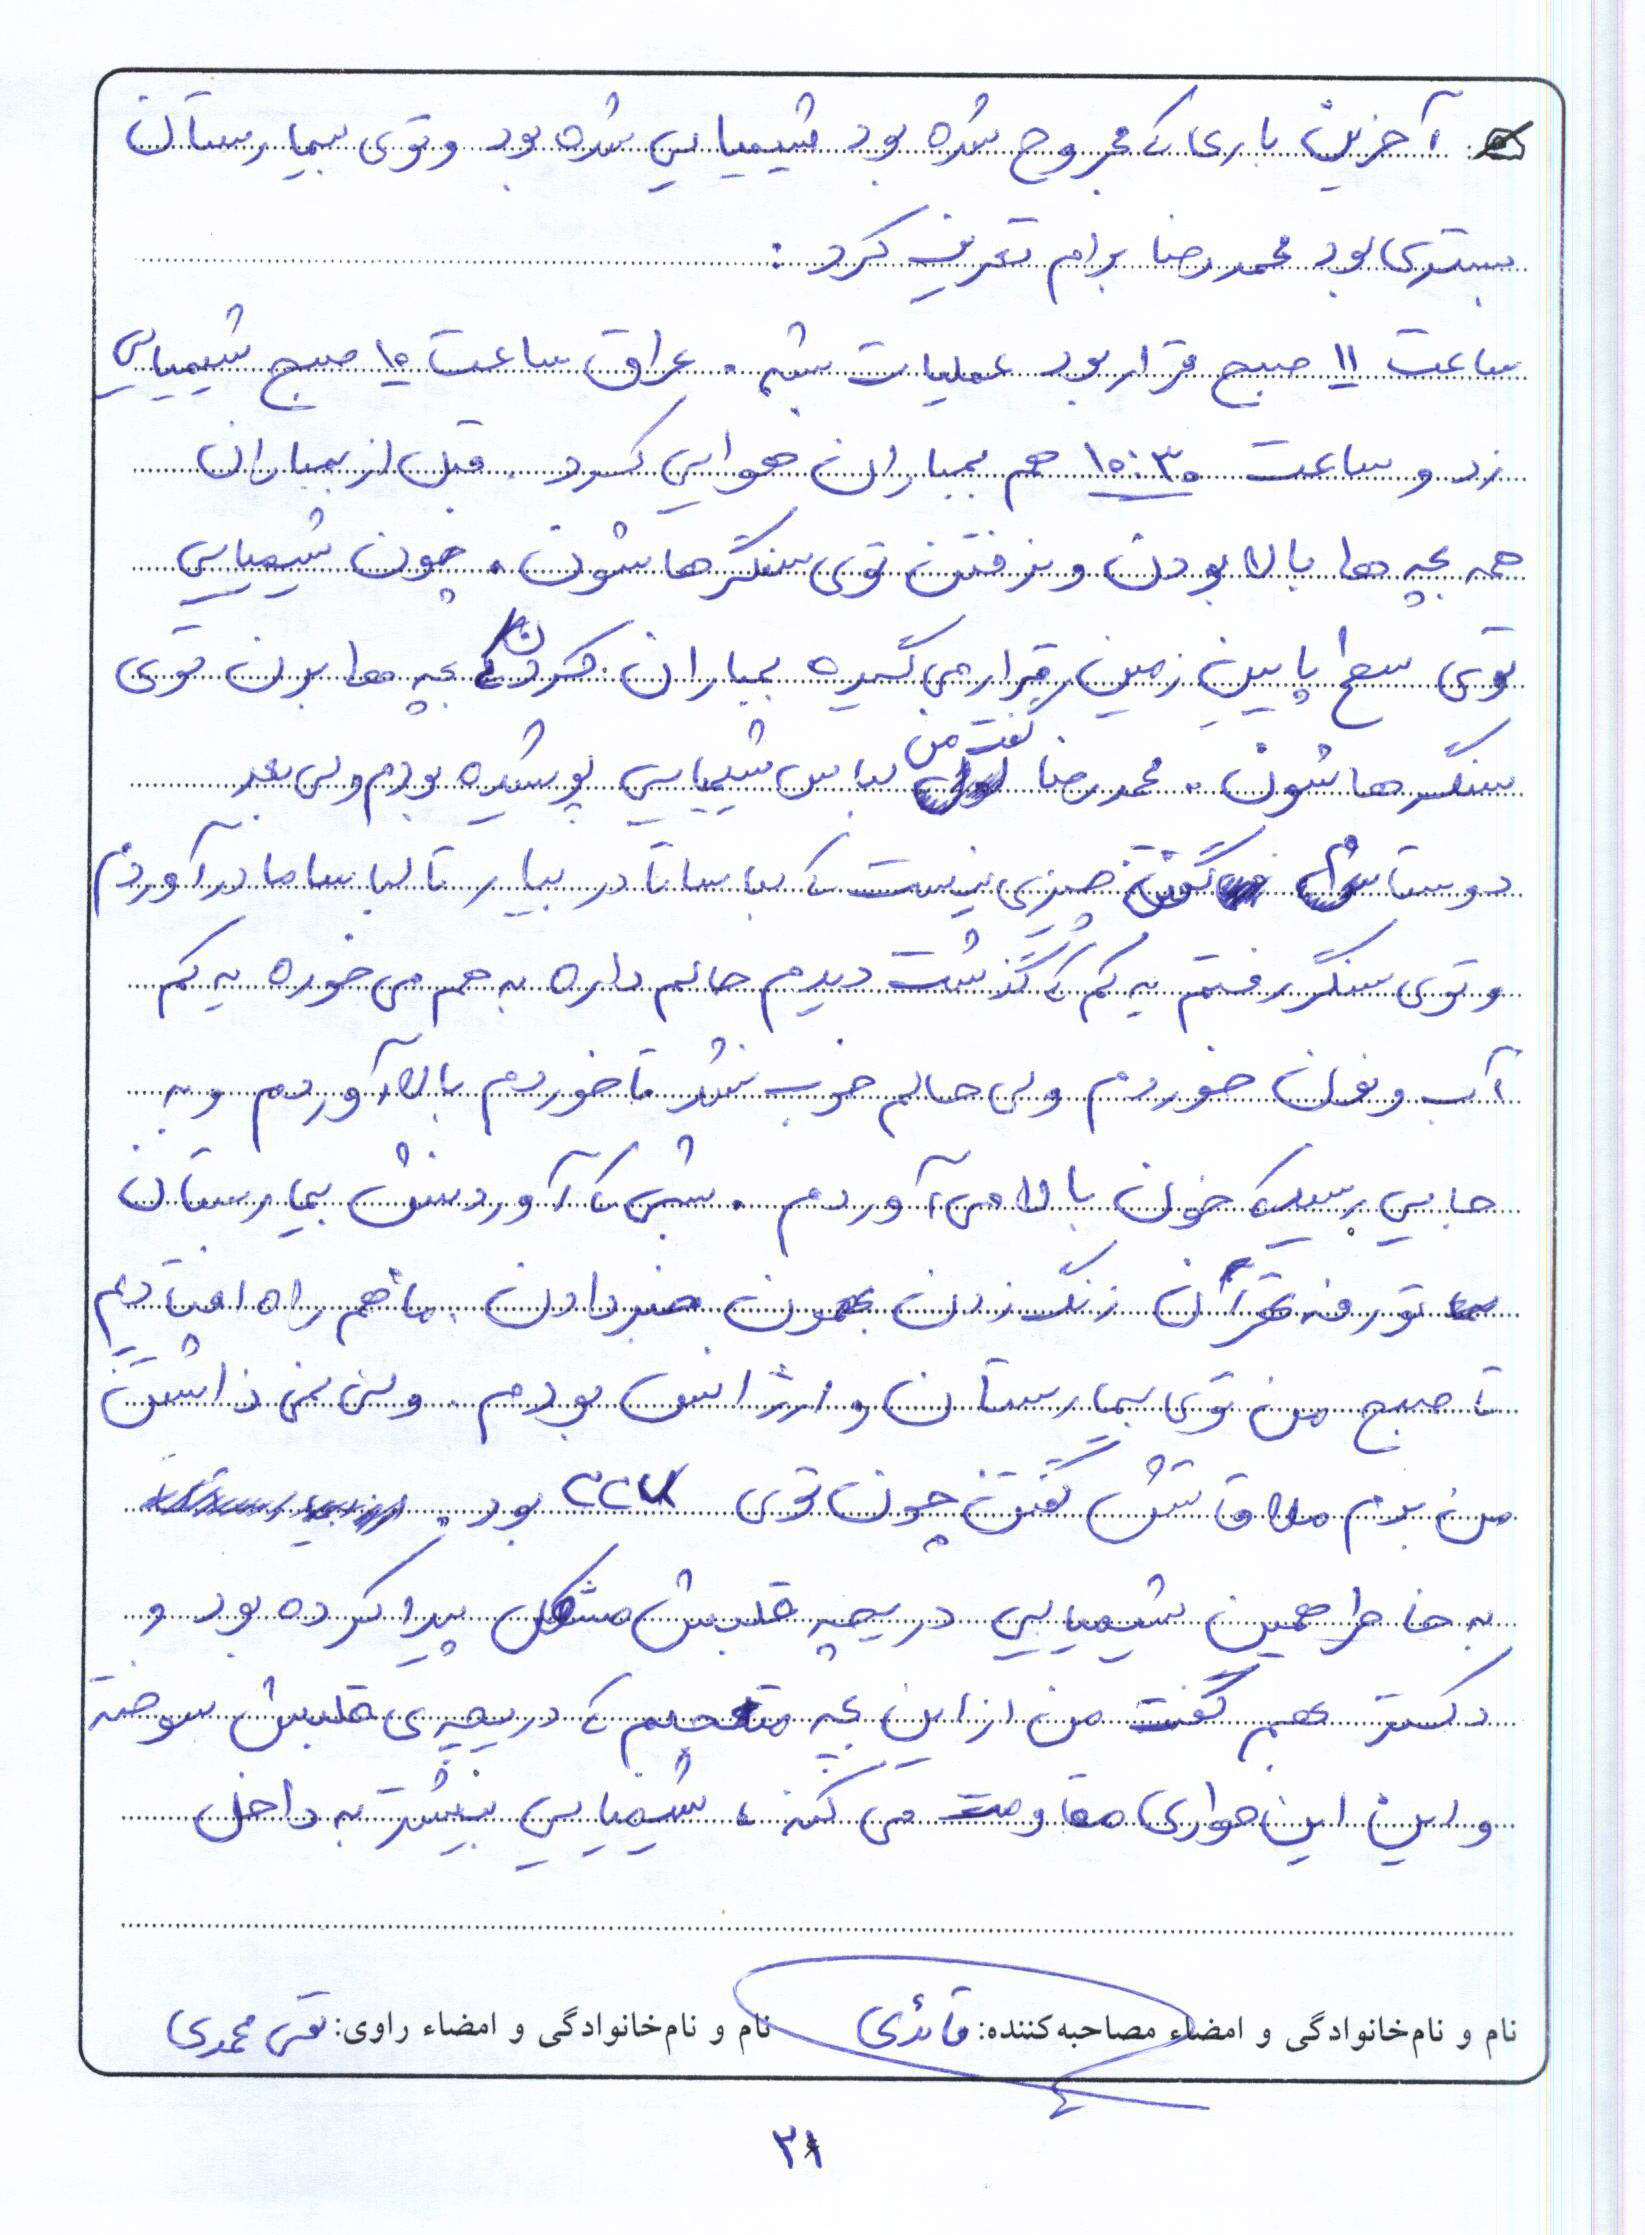 آخرین باری که مجروح شده بود شیمیایی شده بود و توی بیمارستان
بستری بود محمدرضا برام تعریف کرد :
ساعت ۱۱ صبح قرار بود عملیات بشه . عراق ساعت ۱۰ صبح شیمیایی
زد و ساعت ۱۰:۳۰ هم بمباران هوایی کرد . قبل از بمباران
همه بچه ها بالا بودن و نرفتن توی سنگرهاشون . چون شیمیایی
توی سطح پایین زمین قرار می گیره بمباران کردن که بچه ها برن توی
سنگرهاشون . محمدرضا گفت من لباس شیمیایی پوشیده بودم ولی بعد
دوستام گفتن چیزی نیست که لباساتا در بیار تا لباساما درآوردم
و توی سنگر رفتم یه کم که گذشت دیدم حالم داره به هم می خوره یه کم
آب و نون خوردم ولی حالم خوب نشد تا خوردم بالا آوردم و به
جایی رسید که خون بالا می آوردم . شبی که آوردنش بیمارستان
زنگ زدن بهمون خبر دادن . ما هم راه افتادیم
تا صبح من توی بیمارستان و اورژانس بودم . ولی نمی ذاشتن
من برم ملاقاتش گفتن چون توی CCU بود .
به خاطر همین شیمیایی دریچه قلبش مشکل پیدا کرده بود و
دکتر بهم گفت من از این بچه متعجبم که دریچه ی قلبش سوخته
و این این جوری مقاومت می کنه ، شیمیایی بیشتر به داخل
نام و نام‌خانوادگی و امضاء مصاحبه‌کننده: قائدی نام و نام‌خانوادگی و امضاء راوی: تقی محمدی
۲۱